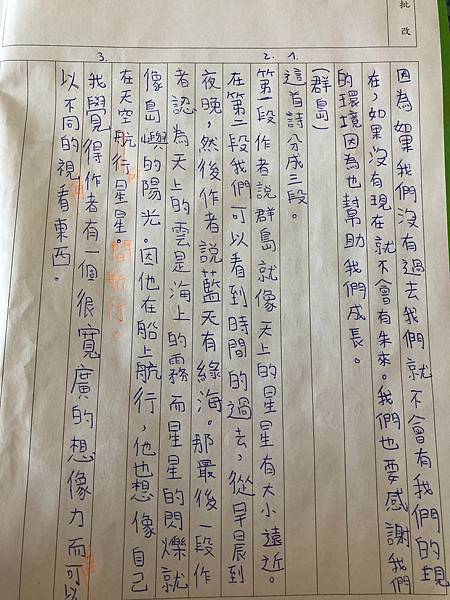 批改
因為如果我們沒有過去我們就不會有我們的現
在，如果沒有現在就不會有未來。我們也要感謝我們
的環境因為也幫助我們成長。
(群島)
1. 這首詩分成三段。
2. 第一段作者說群島就像天上的星星有大小遠近。
在第二段我們可以看到時間的過去，從早晨到
夜晚，然後作者說藍天有綠海。那最後一段作
者認為天上的雲是海上的霧而星星的閃爍就
像島嶼的陽光。因他在船上航行，他也想像自己
在天空航行星星。間航行。
3. 我覺得作者有一個很寬廣的想像力而可以
以不同的視看東西。